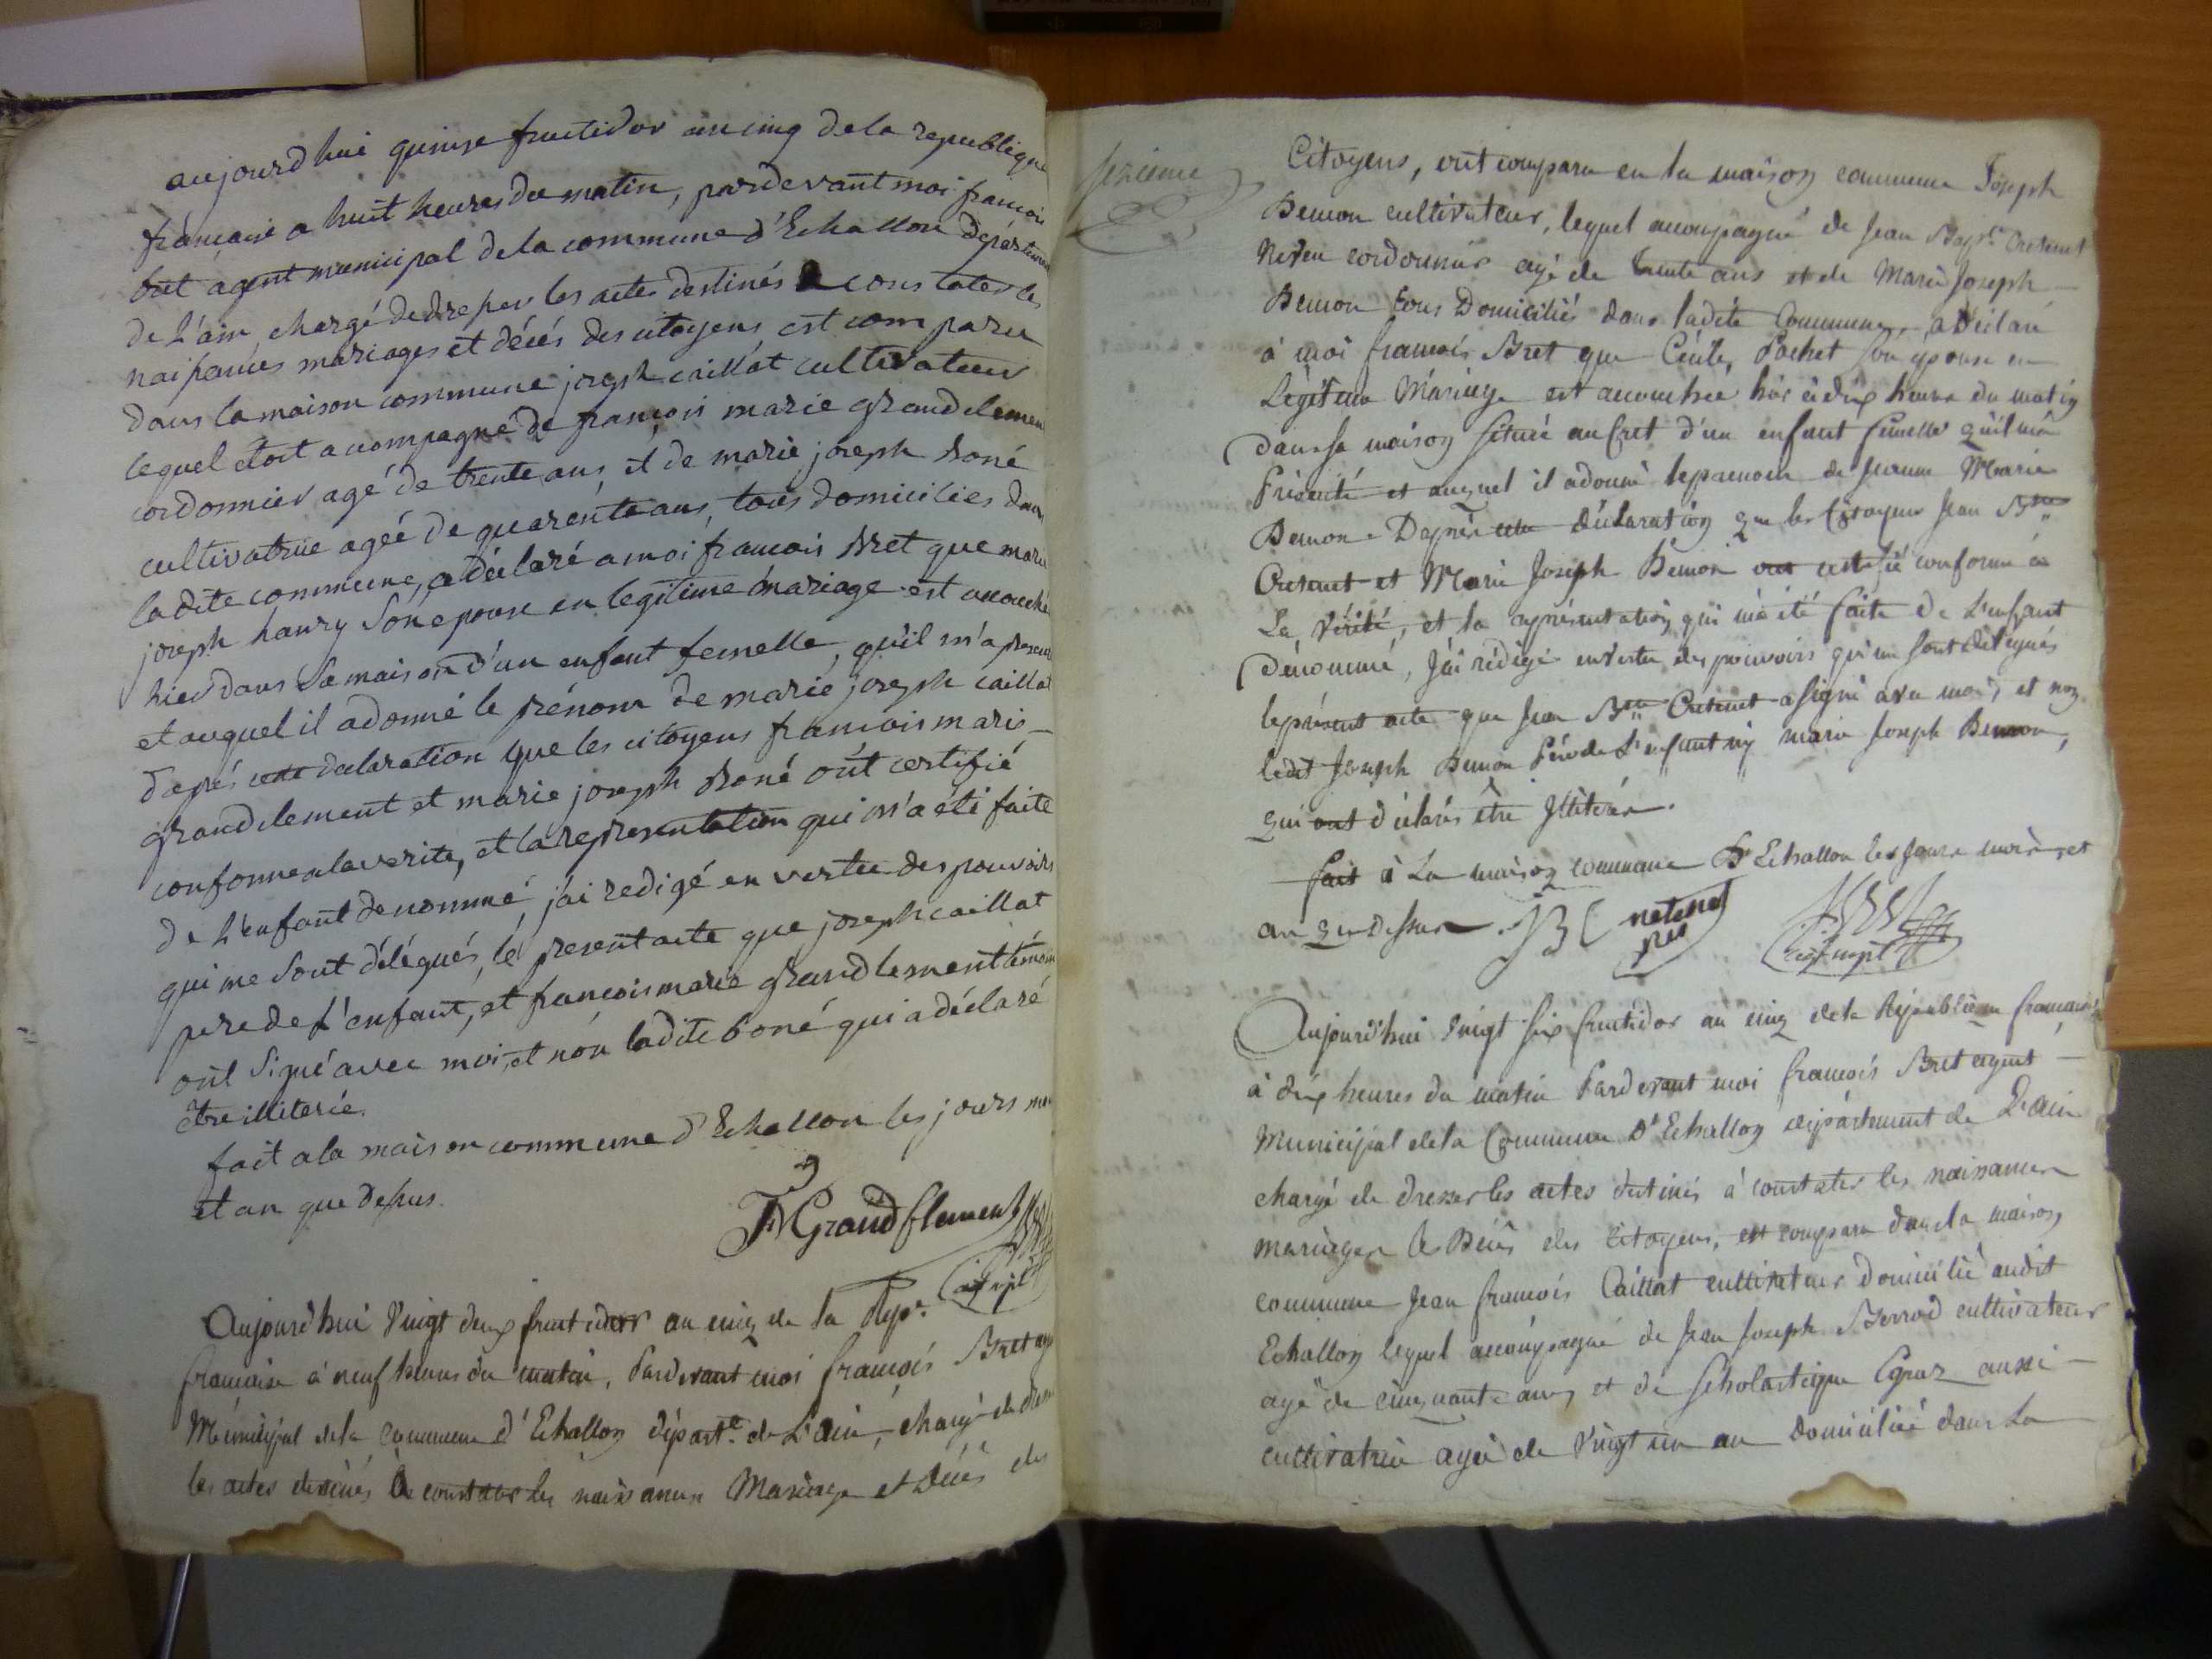 aujourd'hui quinse fructidor an cinq de la republique
francaise a huit heures du matin, pardevant moi francois
bret agent municipal de la commune d'Echallon département
de L'ain chargé de dresser les actes destinés a constater les
naissances mariages et décés des citoyens est comparu
dans la maison commune joseph caillat cultivateur
lequel étoit acompagné de françois marie grandclement
cordonnier agé de trente ans, et de marie joseph boné
cultivatrice agéé de quarénte ans, tous domiciliés dans
ladite commune, a déclaré a moi francois Bret que marie
joseph hanry son epouse en legitime mariage est accouchée
hier dans sa maison d'un enfant femelle, qu'il m'a presenté
et auquel il a donné le prénom de marie joseph caillat
d'aprés cette declaration que les citoyens francois marie
grandclement et marie joseph boné ont certifié
conforme a la verite, et la representation qui m'a été faite
de L'enfant denommé, j'ai redigé en vertu des pouvoirs
qui me sont délégués, le present acte que joseph caillat
pere de l'enfant, et francois marie grandclement témoin
ont signé avec moi, et non ladite boné qui a déclaré
etre illiterée.
fait a la maison commune d'Echallon les jours mois
et an que dessus.
FM Grandclement
Aujourd'hui Vingt deux fructidor an cinq de la Rep.
francaise à neuf heures du matin, Pardevant moi françois Bret agt
Municipal de la Commune d'Echallon départ.t de L'ain, chargé de dresser
les actes destinés à constater les naissances Mariage et Décés des
sexieme
Citoyens, ont comparu en la maison commune Joseph
Bemon cultivateur, lequel accompagné de Jean Bapt.e Cretenet
Neveu cordonnier agé de trente ans et de Marie Joseph
Bemon tous Domiciliés dans ladite Commune, a déclaré
à moi francois Bret que Cécile Pochet son épouse en
Légitime Mariage est accouchée hier à dix heures du matin
dans sa maison située au Cret d'un enfant femelle qu'il m'a
Présenté et auquel il a donné le prenom de Jeanne Marie
Bemon. D'après cette déclaration que les Citoyens Jean B.te
Cretenet et Marie Joseph Bemon ont certifié conforme à
La Vérité, et la représentation qui m'a été faite de L'enfant
dénommé, J'ai rédigé en vertu des pouvoirs qui me sont délégués
le présent acte que Jean B.te Cretenet a signé avec moi, et non
ledit Joseph Bemon Pére de L'enfant ny marie Joseph Bemon,
qui ont déclarés être Illitérés.
fait à La maison commune D'Echallon les jours mois et
an que dessus. JB Cretenet
Aujourd'hui Vingt six fructidor an cinq de la République francaise
à dix heures du matin Pardevant moi francois Bret agent
Municipal de la Commune D'Echallon département de L'ain
chargé de dresser les actes destinés à constater les naissances
mariages & Décés des Citoyens, est comparu dans la maison
commune Jean francois Caillat cultivateur domicilié audit
Echallon lequel accompagné de Jean Joseph Berrod cultivateur
agé de cinquante ans et de Scholastique Egraz aussi
cultivatrice agée de Vingt un an Domiciliée dans La